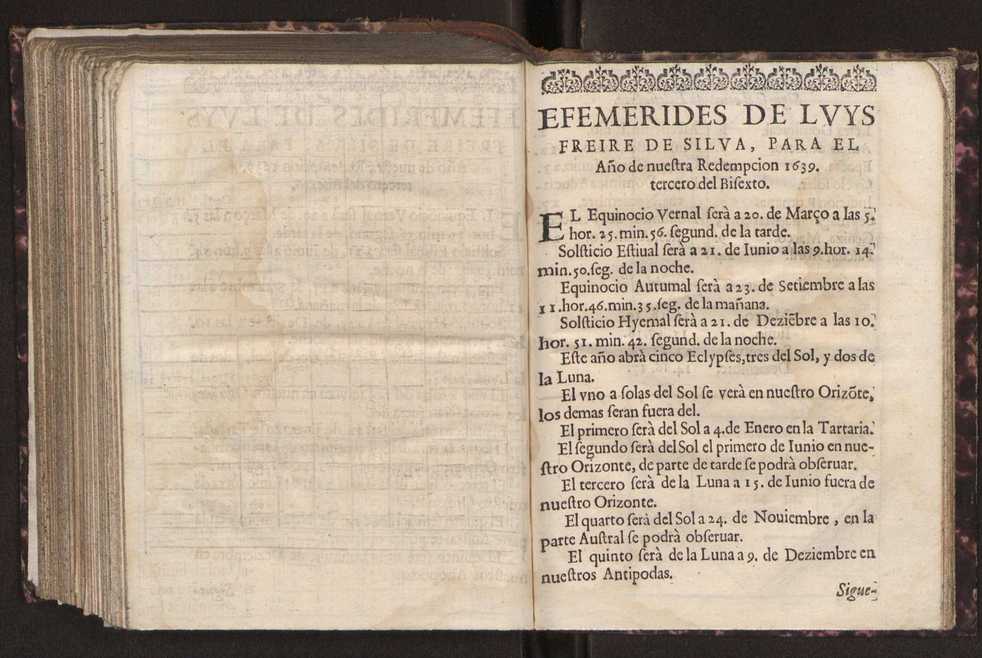 EFEMERIDES DE LVYS
FREIRE DE SILVA, PARA EL
Año de nueſtra Redempcion 1639.
tercero del Biſexto.
EL Equinocio Vernal ſerà a 20. de Março a las 5.
hor. 25. min. 56. ſegund. de la tarde.
Solſticio Eſtiual ſerà a 21. de Iunio a las 9. hor. 14.
min. 50. ſeg. de la noche.
Equinocio Autumal ſerà a 23. de Setiembre a las
11. hor. 46. min. 35. ſeg. de la mañana.
Solſticio Hyemal ſerà a 21. de Deziẽbre a las 10.
hor. 51. min. 42. ſegund. de la noche.
Eſte año abrà cinco Eclypſes, tres del Sol, y dos de
la Luna.
El vno a ſolas del Sol ſe verà en nueſtro Orizõte,
los demas ſeran fuera del.
El primero ſerà del Sol a 4. de Enero en la Tartaria.
El ſegundo ſerà del Sol el primero de Iunio en nue-
ſtro Orizonte, de parte de tarde ſe podrà obſeruar.
El tercero ſerà de la Luna a 15. de Iunio fuera de
nueſtro Orizonte.
El quarto ſerà del Sol a 24. de Nouiembre, en la
parte Auſtral ſe podrà obſeruar.
El quinto ſerà de la Luna a 9. de Deziembre en
nueſtros Antipodas.
Sigue-